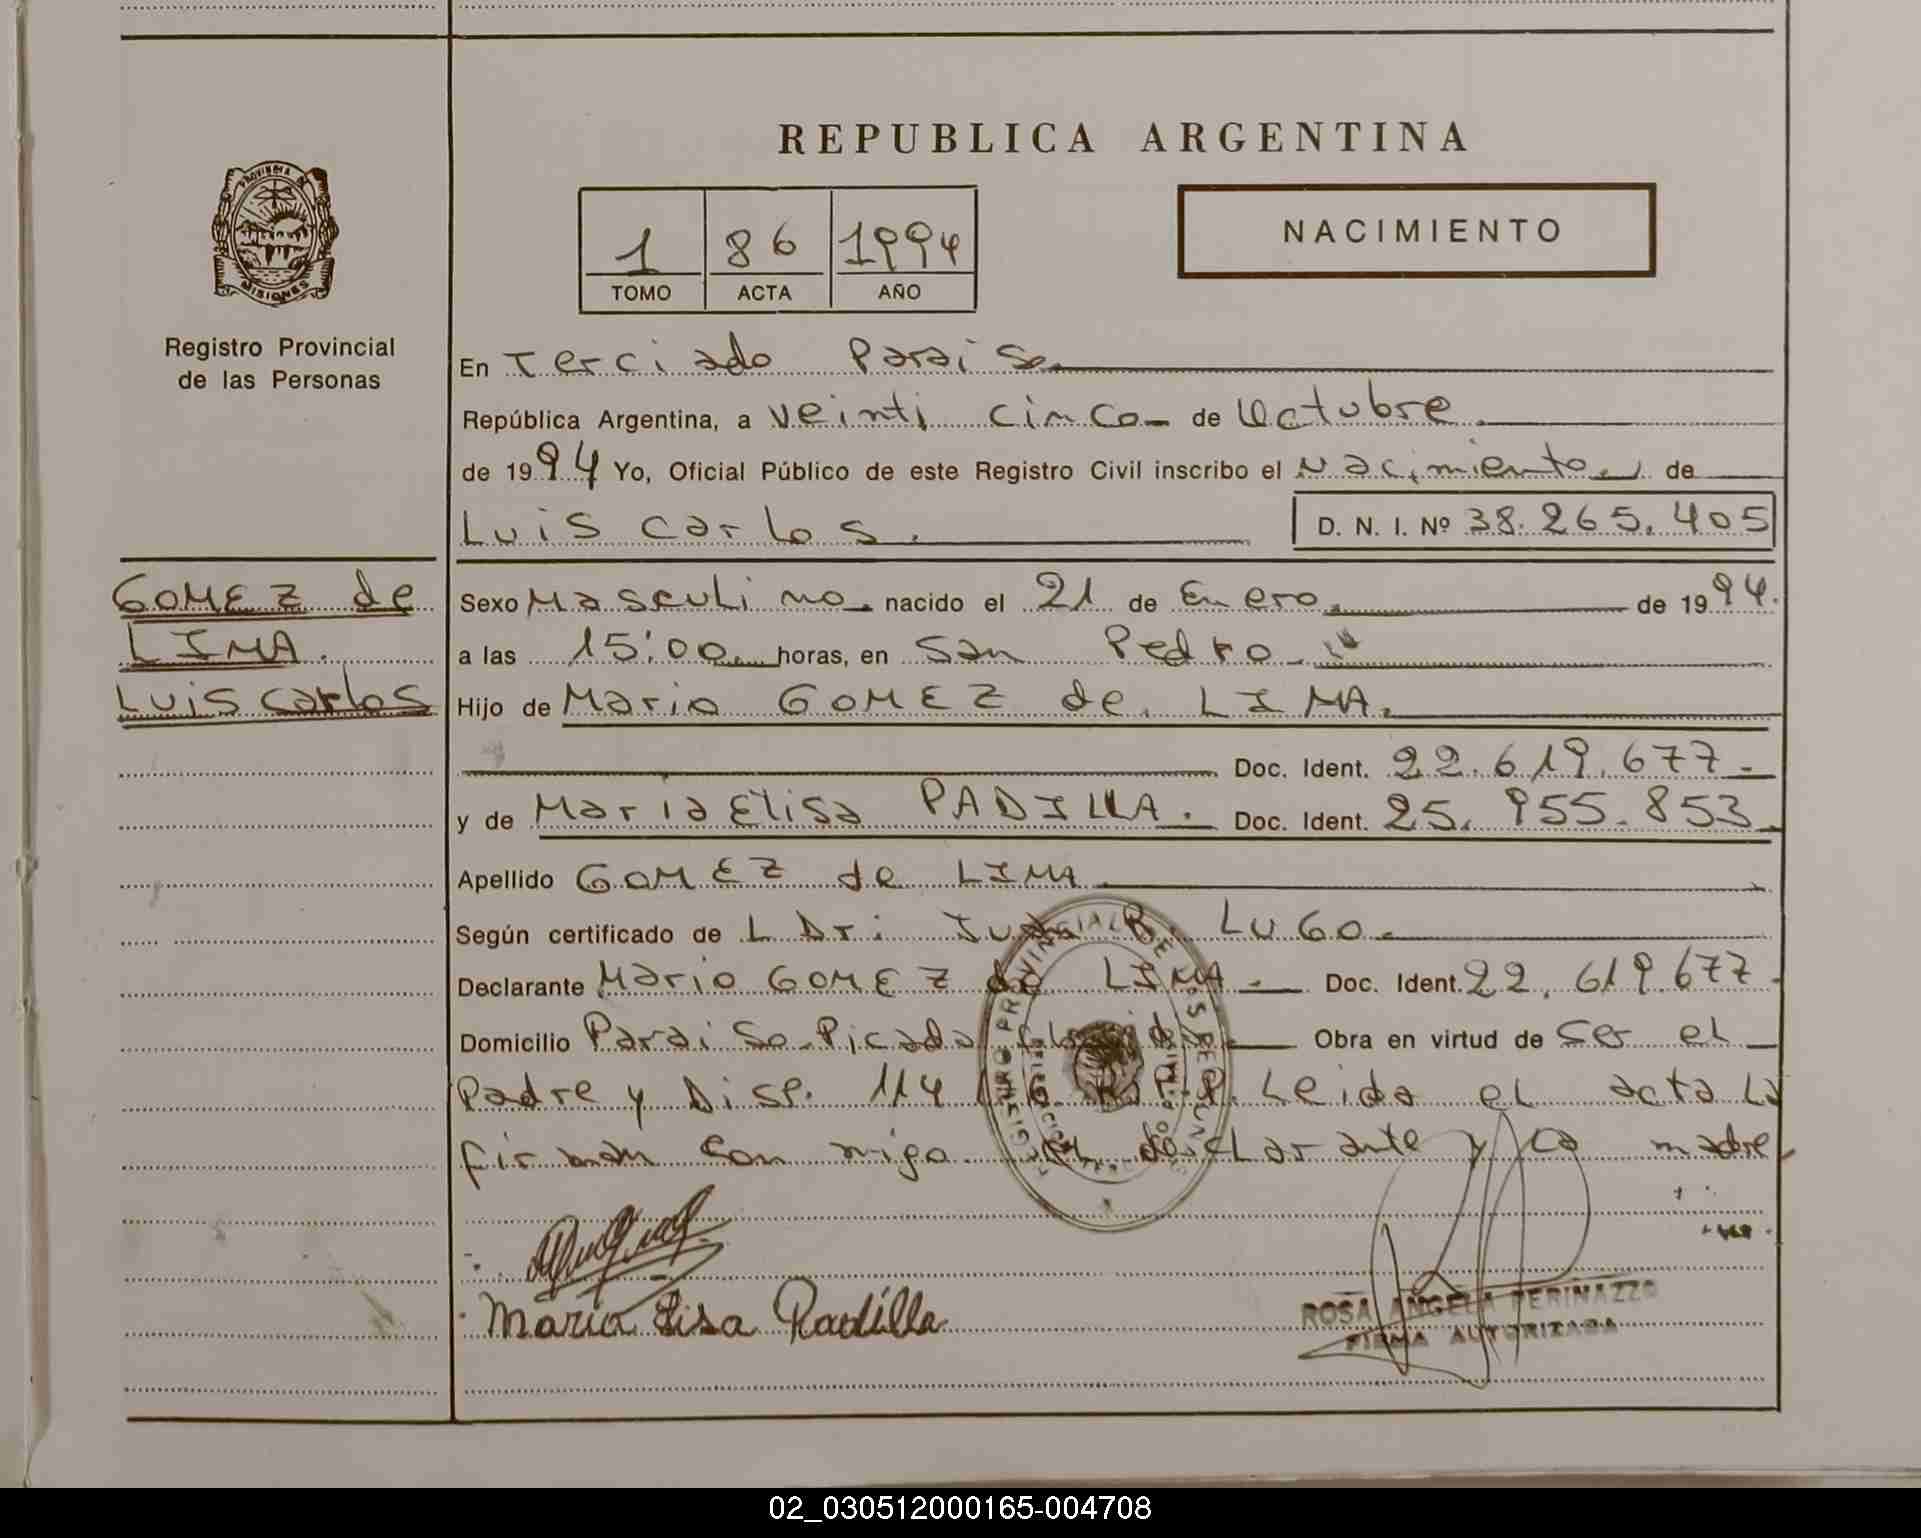 REPUBLICA ARGENTINA
PROVINCIA DE
MISIONES
Registro Provincial
de las Personas
1 86 1994
TOMO ACTA AÑO
NACIMIENTO
En Terciado Paraiso
República Argentina, a Veinti cinco de Octubre
de 1994 Yo, Oficial Público de este Registro Civil inscribo el Nacimiento de
Luis Carlos. D. N. I. Nº 38.265.405
GOMEZ de
LIMA.
Luis Carlos
Sexo Masculino nacido el 21 de Enero de 1994.
a las 15:00 horas, en San Pedro
Hijo de Mario GOMEZ de LIMA.
Doc. Ident. 22.619.677
y de Maria Elisa PADILLA. Doc. Ident. 25.955.853
Apellido GOMEZ de LIMA
Según certificado de L Dr: Juan R. LUGO.
Declarante Mario GOMEZ de LIMA Doc. Ident. 22.619.677
Domicilio Paraiso-Picada Obra en virtud de Ser el
Padre y Disp. 114 Leida el acta La
firman con migo el declarante y la madre
Maria Lisa Padilla
ROSA ANGELA PERINAZZO
FIRMA AUTORIZADA
02_030512000165-004708